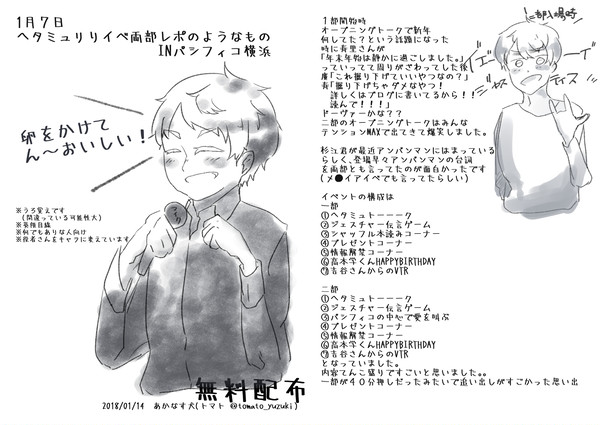 1月7日
ヘタミュリリイベ両部レポのようなもの
INパシフィコ横浜
卵をかけて
ん～おいしい!
※うろ覚えです
(間違っている可能性大)
※英推目線
※何でもありな人向け
※役者さんをキャラに変えています
無料配布
2018/01/14 あかなす犬(トマト @tomato_yuzuki)
1部開始時
オープニングトークで新年
何してた?という話題になった
時に寿里さんが
「年末年始は静かに過ごしました。」
っていってて周りがざわってした後
廣「これ掘り下げていいやつなの?」
寿「掘り下げちゃダメなやつ!
詳しくはブログに書いてるから!!
読んで!!!」
ドーヴァーかな??
二部のオープニングトークはみんな
テンションMAXで出てきて爆笑しました。
杉江君が最近アンパンマンにはまっている
らしく、登場早々アンパンマンの台詞
を両部とも言ってたのが面白かったです
(メ●イアイベでも言ってたらしい)
イベントの構成は
一部
①ヘタミュトーーーク
②ジェスチャー伝言ゲーム
③シャッフル本読みコーナー
④プレゼントコーナー
⑤情報解禁コーナー
⑥高本学くんHAPPYBIRTHDAY
⑦吉谷さんからのVTR
二部
①ヘタミュトーーーク
②ジェスチャー伝言ゲーム
③パシフィコの中心で愛を叫ぶ
④プレゼントコーナー
⑤情報解禁コーナー
⑥高本学くんHAPPYBIRTHDAY
⑦吉谷さんからのVTR
となっていました。
内容てんこ盛りですごいと思いました。。
一部が40分押しだったみたいで追い出しがすごかった思い出